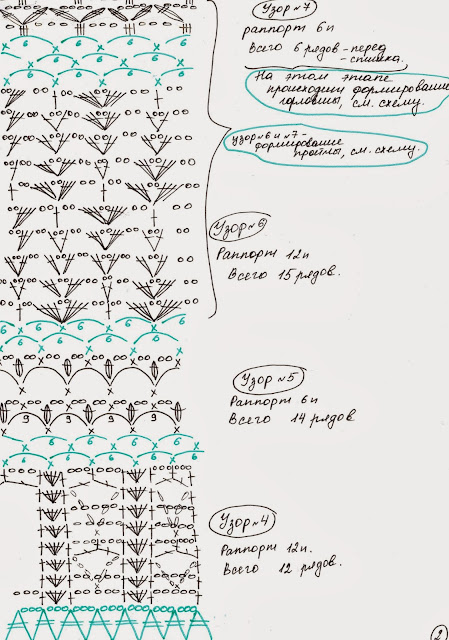 Узор №7
раппорт 6п
Всего 6 рядов - перед
- спинка.
На этом этапе
происходит формирование
горловины, см. схему.
узор №6 и №7 -
формирование
проймы, см. схему.
Узор №6
Раппорт 12п
Всего 15 рядов.
Узор №5
Раппорт 6п
Всего 14 рядов
9 9 9 9
Узор №4
Раппорт 12п.
Всего 12 рядов.
2